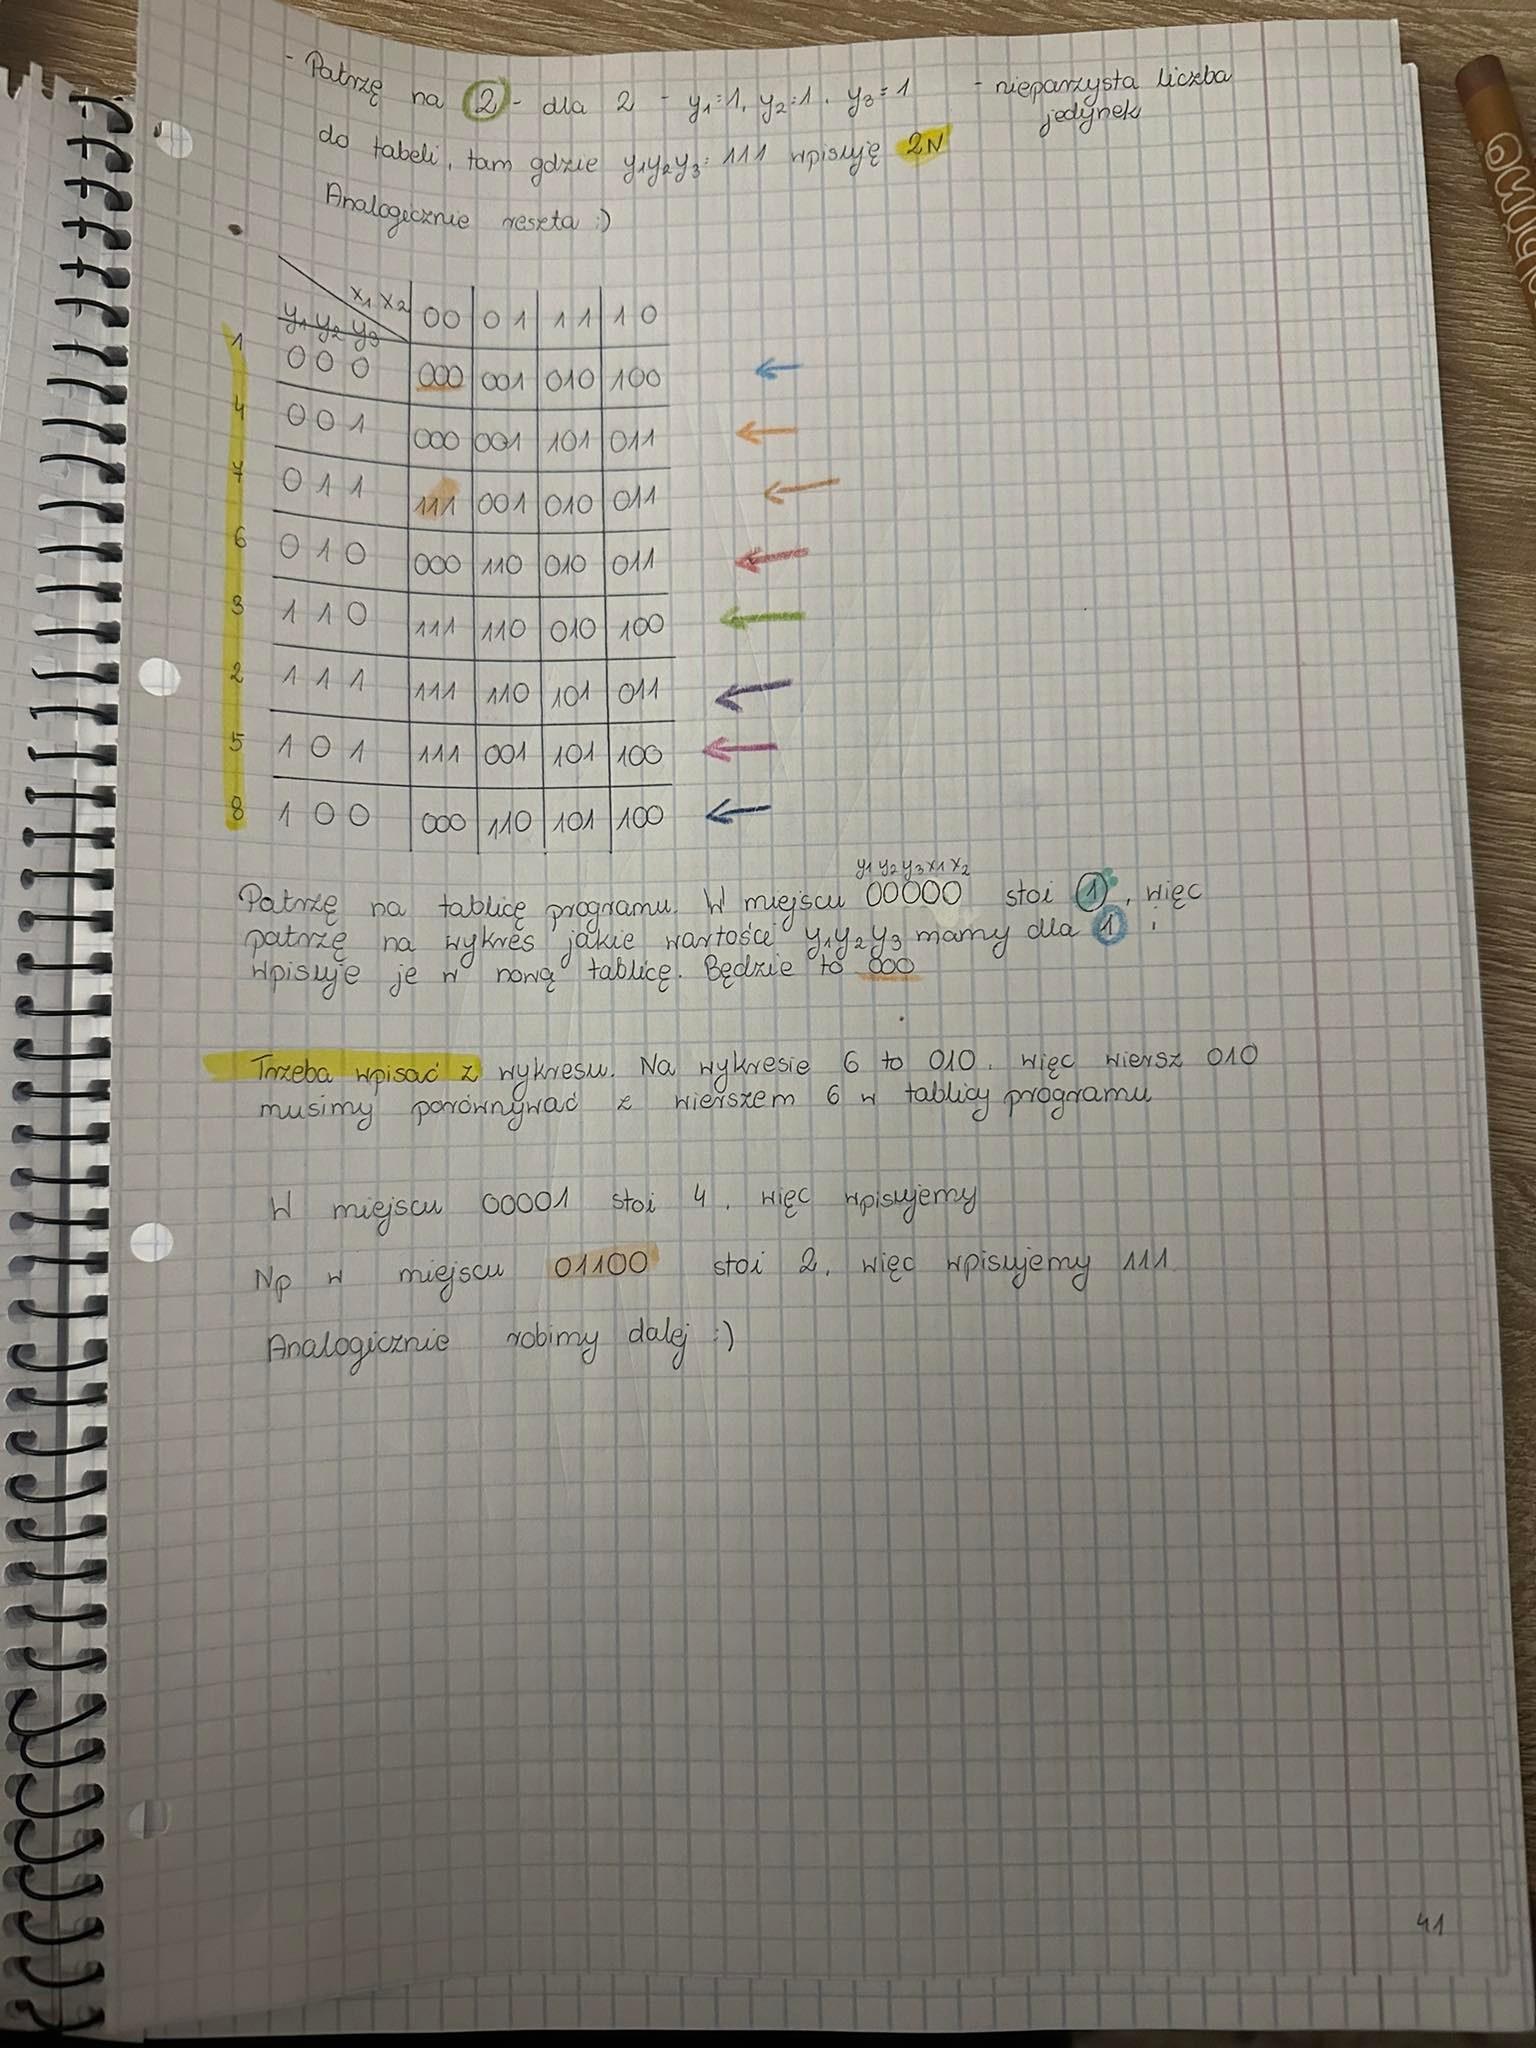 - Patrzę na 2 - dla 2 - y1=1, y2=1, y3=1 - nieparzysta liczba
jedynek
do tabeli, tam gdzie y1y2y3=111 wpisuję 2N
Analogicznie reszta :)
x1 x2 00 01 11 10
y1 y2 y3
1 000 000 001 010 100
4 001 000 001 101 011
7 011 111 001 010 011
6 010 000 110 010 011
3 110 111 110 010 100
2 111 111 110 101 011
5 101 111 001 101 100
8 100 000 110 101 100
y1 y2 y3 x1 x2
Patrzę na tablicę programu. W miejscu 00000 stoi 1, więc
patrzę na wykres jakie wartości y1y2y3 mamy dla 1 i
wpisuje je w nową tablicę. Będzie to 000
Trzeba wpisać z wykresu. Na wykresie 6 to 010, więc wiersz 010
musimy porównywać z wierszem 6 w tablicy programu
W miejscu 00001 stoi 4, więc wpisujemy
Np w miejscu 01100 stoi 2, więc wpisujemy 111
Analogicznie robimy dalej :)
41